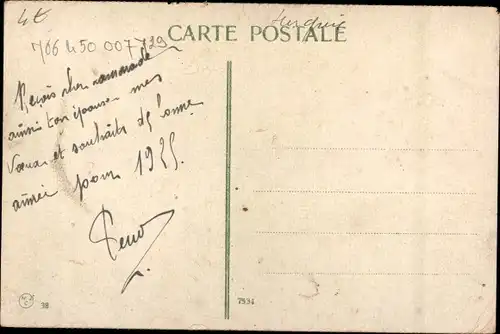 4€
706 450 007 739
CARTE POSTALE
Reçois cher camarade
ainsi ton épouse mes
Vœux et souhaits de bonne
année pour 1925.
38
7934